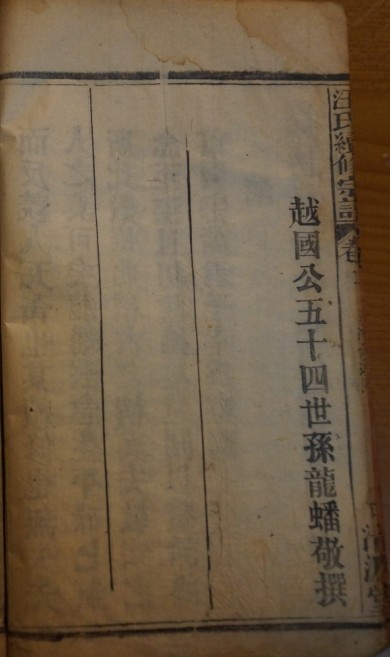 汪氏續修宗譜 卷
越國公五十四世孫龍蟠敬撰